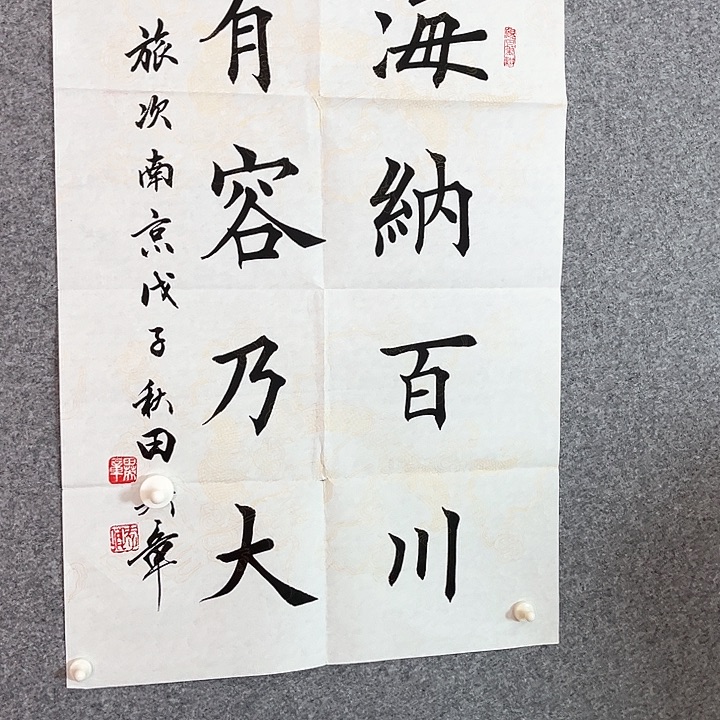 海納百川
有容乃大
旅次南京戊子秋田
章